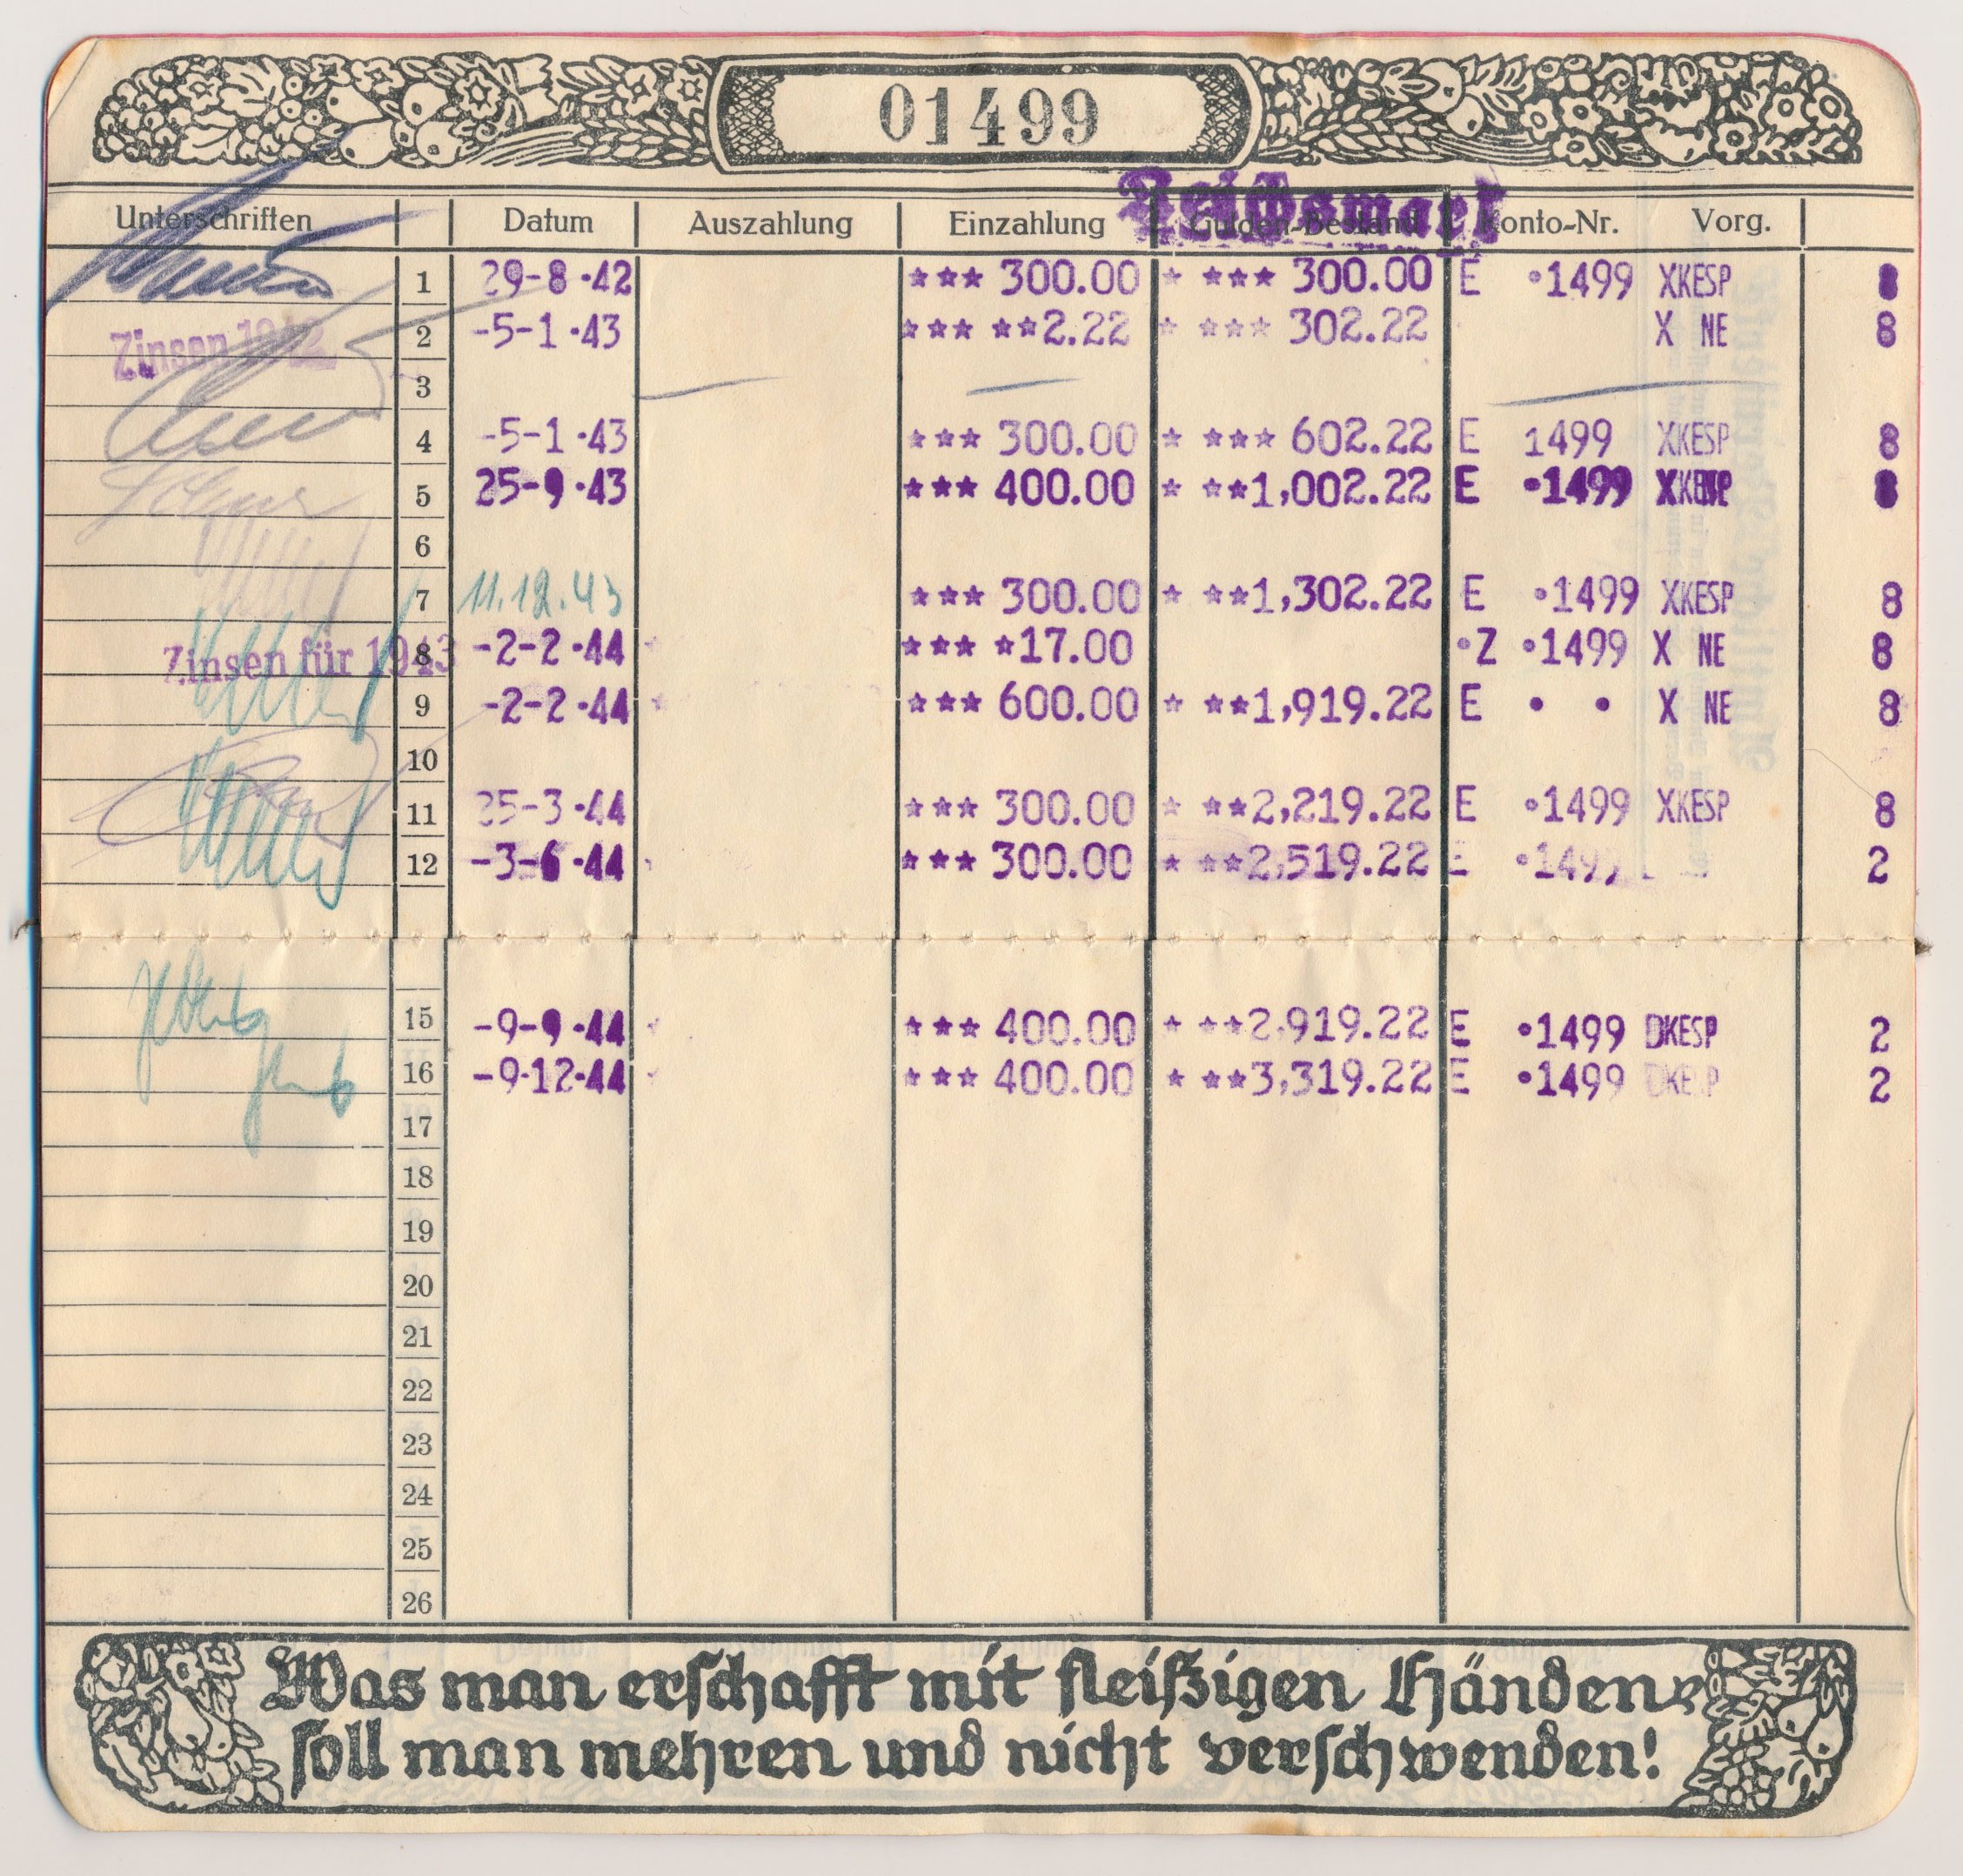 01499
Reichsmark
Unterschriften Datum Auszahlung Einzahlung Gulden-Bestand Konto-Nr. Vorg.
1 29-8·42 *** 300.00 * *** 300.00 E ·1499 XKESP 8
Zinsen 1942 2 -5-1·43 *** **2.22 * *** 302.22 X NE 8
3
4 -5-1·43 *** 300.00 * *** 602.22 E 1499 XKESP 8
5 25-9·43 *** 400.00 * **1,002.22 E ·1499 XKESP 8
6
7 11.12.43 *** 300.00 * **1,302.22 E ·1499 XKESP 8
Zinsen für 1943 8 -2-2·44 *** *17.00 ·Z ·1499 X NE 8
9 -2-2·44 *** 600.00 * **1,919.22 E · · X NE 8
10
11 25-3·44 *** 300.00 * **2,219.22 E ·1499 XKESP 8
12 -3-6·44 *** 300.00 * **2,519.22 E ·1499 2
15 -9-9·44 *** 400.00 * **2,919.22 E ·1499 DKESP 2
16 -9·12·44 *** 400.00 * **3,319.22 E ·1499 DKESP 2
17
18
19
20
21
22
23
24
25
26
Was man erschafft mit fleißigen Händen
soll man mehren und nicht verschwenden!